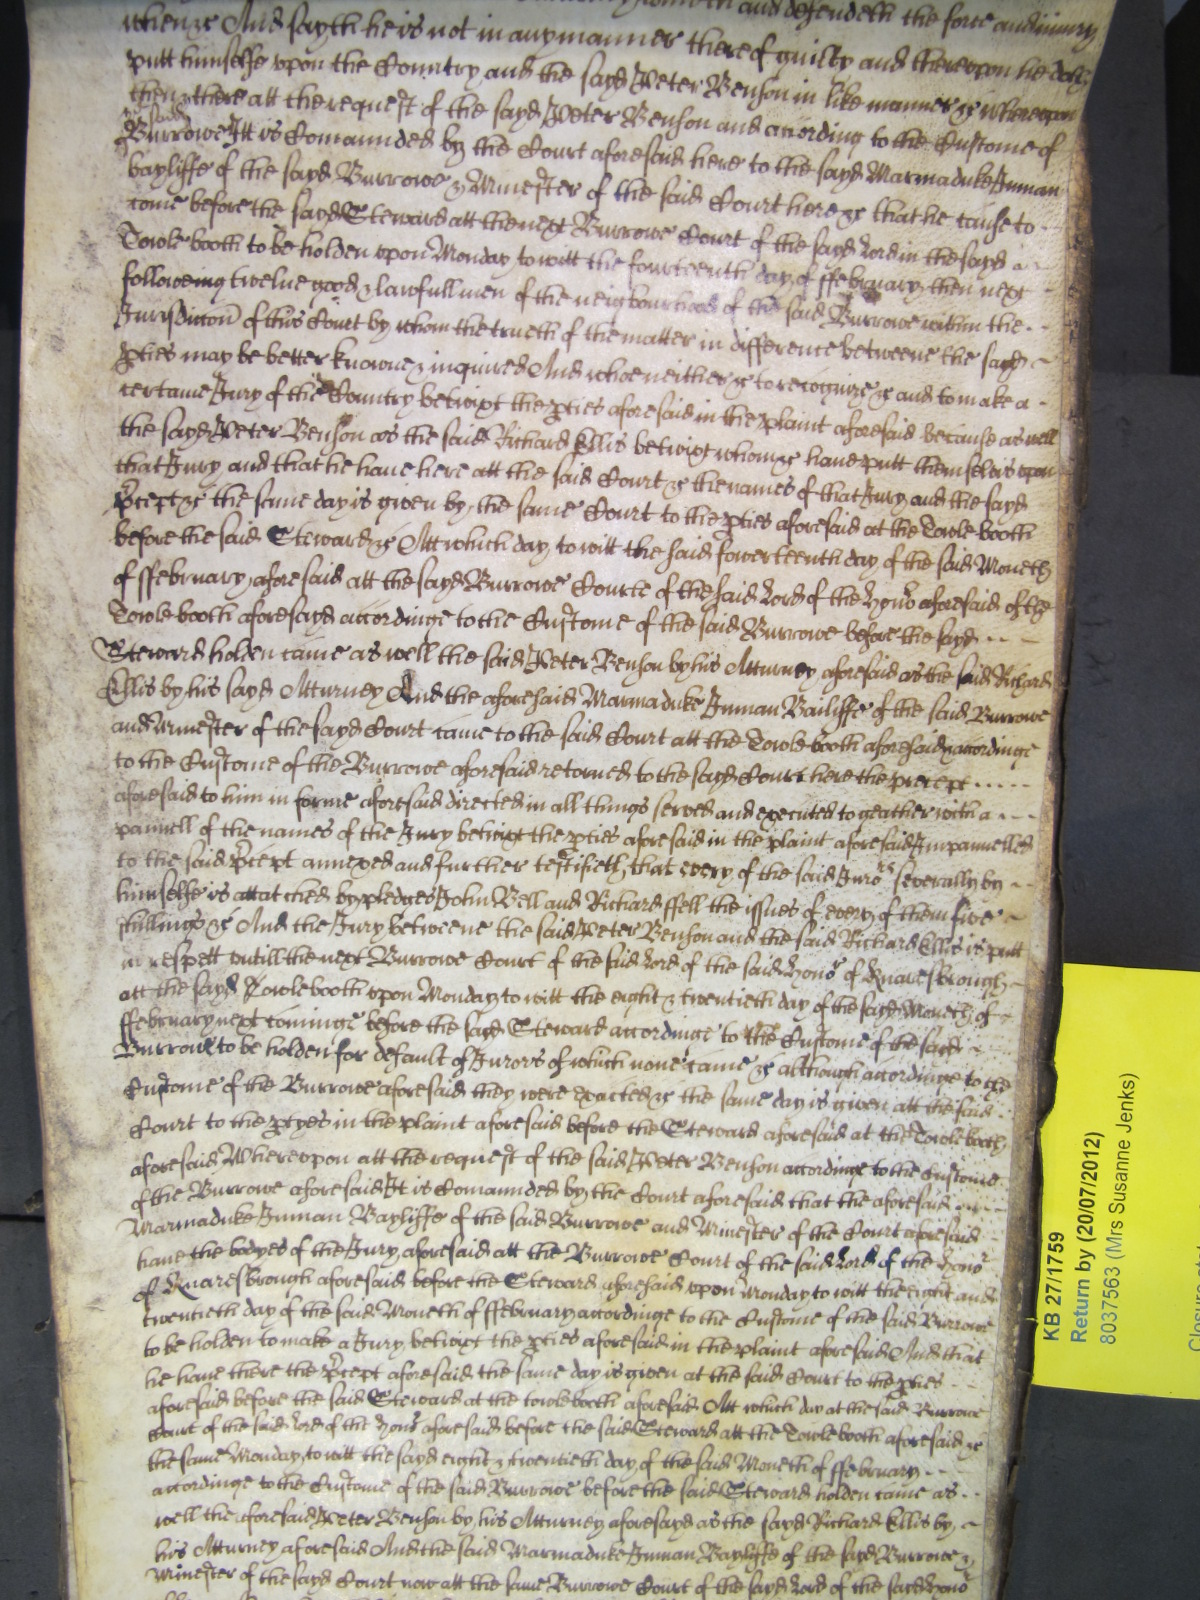 and defendeth the force and iniury
when &c And sayth he is not in any manner thereof guilty and thereupon he doth
putt himselfe upon the Country and the sayd Peter Benson in like manner &c whereupon
then & there att the request of the sayd Peter Benson and according to the Custome of
Burrowe Itt is Comannded by the Court aforesaid here to the sayd Marmaduke Inman
bayliffe of the sayd Burrowe & Minester of the said Court here &c that he cause to
come before the sayd Steward att the next Burrowe Court of the sayd Lord in the sayd
Towle booth to be holden upon Monday to witt the fourteenth day of ffebruary then next
followeing twelue good & lawfull men of the neigbourhood of the said Burrowe within the
Jurisdiccon of this Court by whom the trueth of the matter in difference betweene the sayd
pties may be better knowne & inquired And whoe neither &c to recognize &c and to make a
certaine Jury of the Country betwixt the pties aforesaid in the plaint aforesaid because as well
the sayd Peter Benson as the said Richard Ellis betwixt whom &c haue putt themselves upon
that Jury and that he haue here att the said Court &c the names of that Jury and the sayd
pcept &c the same day is given by the same Court to the pties aforesaid at the Towle booth
before the said Steward &c Att which day to witt the said fowerteenth day of the said Moneth
of ffebruary aforesaid att the sayd Burrowe Courte of the said Lord of the Honor aforesaid of the
Towle booth aforesayd accordinge to the Custome of the said Burrowe before the sayd
Steward holden came as well the said Peter Benson by his Atturney aforesaid as the said Richard
Ellis by his sayd Atturney And the aforesaid Marmaduke Inman Bailiffe of the said Burrowe
and Minester of the sayd Court came to the said Court att the Towle booth aforesaid accordinge
to the Custome of the Burrowe aforesaid retorned to the sayd Court here the precept
aforesaid to him in forme aforesaid directed in all things served and executed to geather with a
pannell of the names of the Jury betwixt the pties aforesaid in the plaint aforesaid Impannelled
to the said pcept annexed and further testifieth that every of the said Jurors severally by
himselfe is attatched by pledges John Bell and Richard ffell the issues of every of them five
shillings &c And the Jury betweene the said Peter Benson and the said Richard Ellis is putt
in respett untill the next Burrowe Court of the said Lord of the said Honor of Knaresbrough
att the sayd Towlebooth upon Monday to witt the eight & twentieth day of the sayd Moneth of
ffebruary next cominge before the sayd Steward accordinge to the Custome of the sayd
Burrowe to be holden for default of Jurors of which none came &c although accordinge to the
Custome of the Burrowe aforesaid they were exacted &c the same day is given att the said
Court to the ptyes in the plaint aforesaid before the Steward aforesaid at the Towlebooth
aforesaid Whereupon att the request of the said Peter Benson accordinge to the Custome
of the Burrowe aforesaid It is Comannded by the Court aforesaid that the aforesaid
Marmaduke Inman Bayliffe of the said Burrowe and Minester of the Court aforesaid
haue the bodyes of the Jury aforesaid att the Burrowe Court of the said Lord of the Honor
of Knaresbrough aforesaid before the Steward aforesaid upon Monday to witt the eight and
twentieth day of the said Moneth of ffebruary accordinge to the Custome of the said Burrowe
to be holden to make a Jury betwixt the pties aforesaid in the plaint aforesaid And that
he haue there the pcept aforesaid the same day is given at the said Court to the pties
aforesaid before the said Steward at the towlebooth aforesaid Att which day at the said Burrowe
Court of the said Lord of the Honor aforesaid before the said Steward att the Towlebooth aforesaid &c
the same Monday to witt the sayd eight & twentieth day of the said Moneth of ffebruary
accordinge to the Custome of the said Burrowe before the said Steward holden came as
well the aforesaid Peter Benson by his Atturney aforesayd as the sayd Richard Ellis by
his Atturney aforesaid And the said Marmaduke Inman Bayliffe of the sayd Burrowe &
Minester of the sayd Court now att the same Burrowe Court of the sayd Lord of the sayd Honor
KB 27/1759
Return by (20/07/2012)
8037563 (Mrs Susanne Jenks)